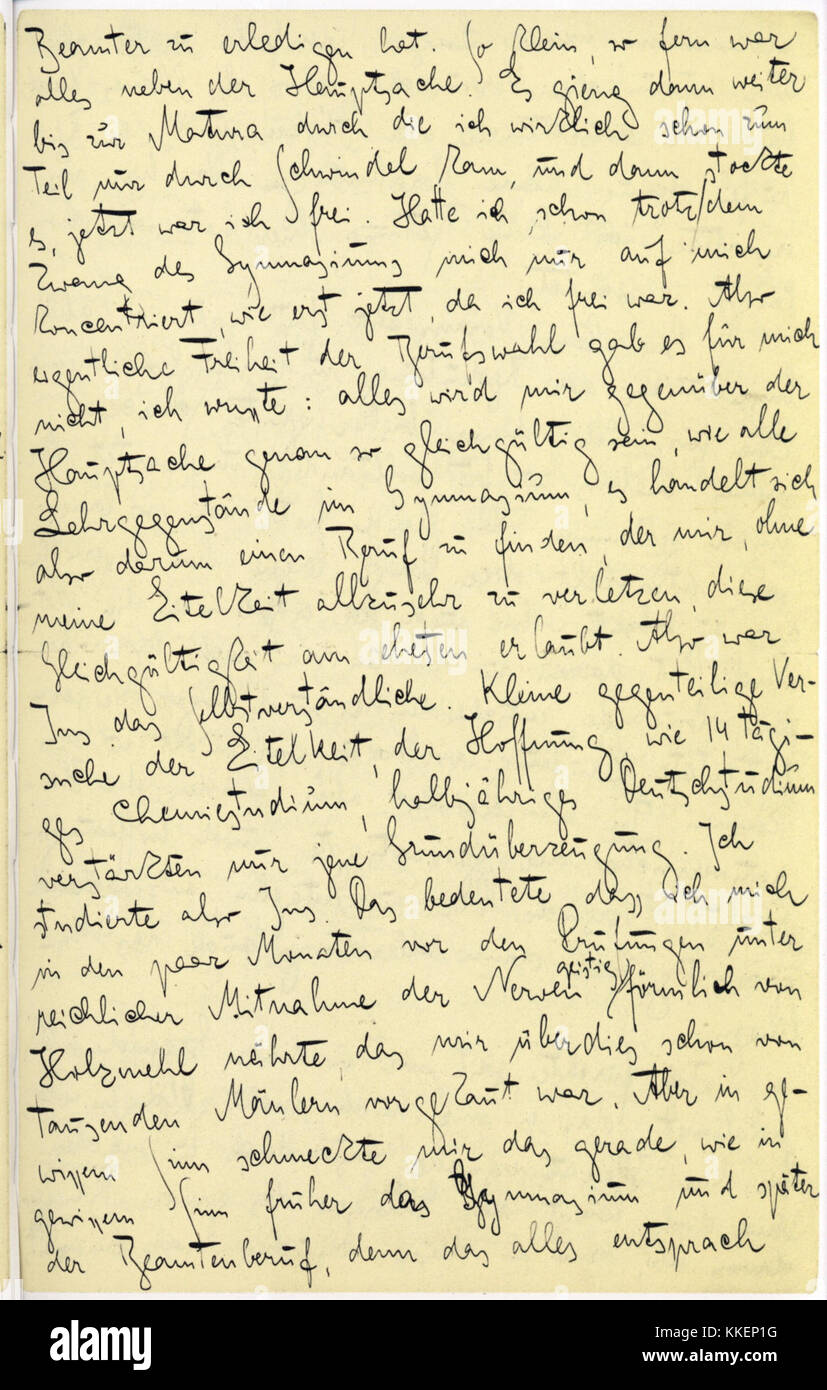 Beamter zu erledigen hat. So klein, so fern war
alles neben der Hauptsache. Es gieng dann weiter
bis zur Matura durch die ich wirklich schon zum
Teil nur durch Schwindel kam, und dann stockte
es, jetzt war ich frei. Hatte ich schon trotz dem
Zwang des Gymnasiums mich nur auf mich
koncentriert, wie erst jetzt, da ich frei war. Also
eigentliche Freiheit der Berufswahl gab es für mich
nicht, ich wusste: alles wird mir gegenüber der
Hauptsache genau so gleichgültig sein, wie alle
Lehrgegenstände im Gymnasium, es handelt sich
also darum einen Beruf zu finden, der mir, ohne
meine Eitelkeit allzusehr zu verletzen, diese
Gleichgültigkeit am ehesten erlaubt. Also war
Jus das Selbstverständliche. Kleine gegenteilige Ver-
suche der Eitelkeit, der Hoffnung, wie 14 tägi-
ges Chemiestudium, halbjähriges Deutschstudium
verstärkten nur jene Grundüberzeugung. Ich
studierte also Jus. Das bedeutete, dass ich mich
in den paar Monaten vor den Prüfungen unter
reichlicher Mitnahme der Nerven geistig förmlich von
Holzmehl nährte, das mir überdies schon von
tausenden Mäulern vorgekaut war. Aber in ge-
wissem Sinn schmeckte mir das gerade, wie in
gewissem Sinn früher das Gymnasium und später
der Beamtenberuf, denn das alles entsprach
alamy
Image ID: KKEP1G
www.alamy.com